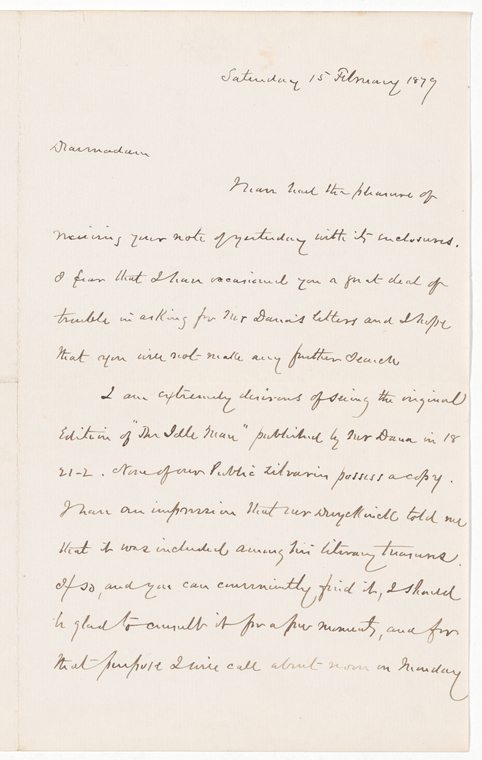 Saturday 15 February 1879
Dear madam
I have had the pleasure of
receiving your note of yesterday with its enclosures.
I fear that I have occasioned you a great deal of
trouble in asking for Mr Dana's letters and I hope
that you will not make any further search
I am extremely desirous of seeing the original
Edition of "The Idle Man" published by Mr Dana in 18
21-2. None of our Public Libraries possess a copy.
I have an impression that Mr Duyckinck told me
that it was included among his literary treasures.
If so, and you can conveniently find it, I should
be glad to consult it for a few moments, and for
that purpose I will call about noon on Monday